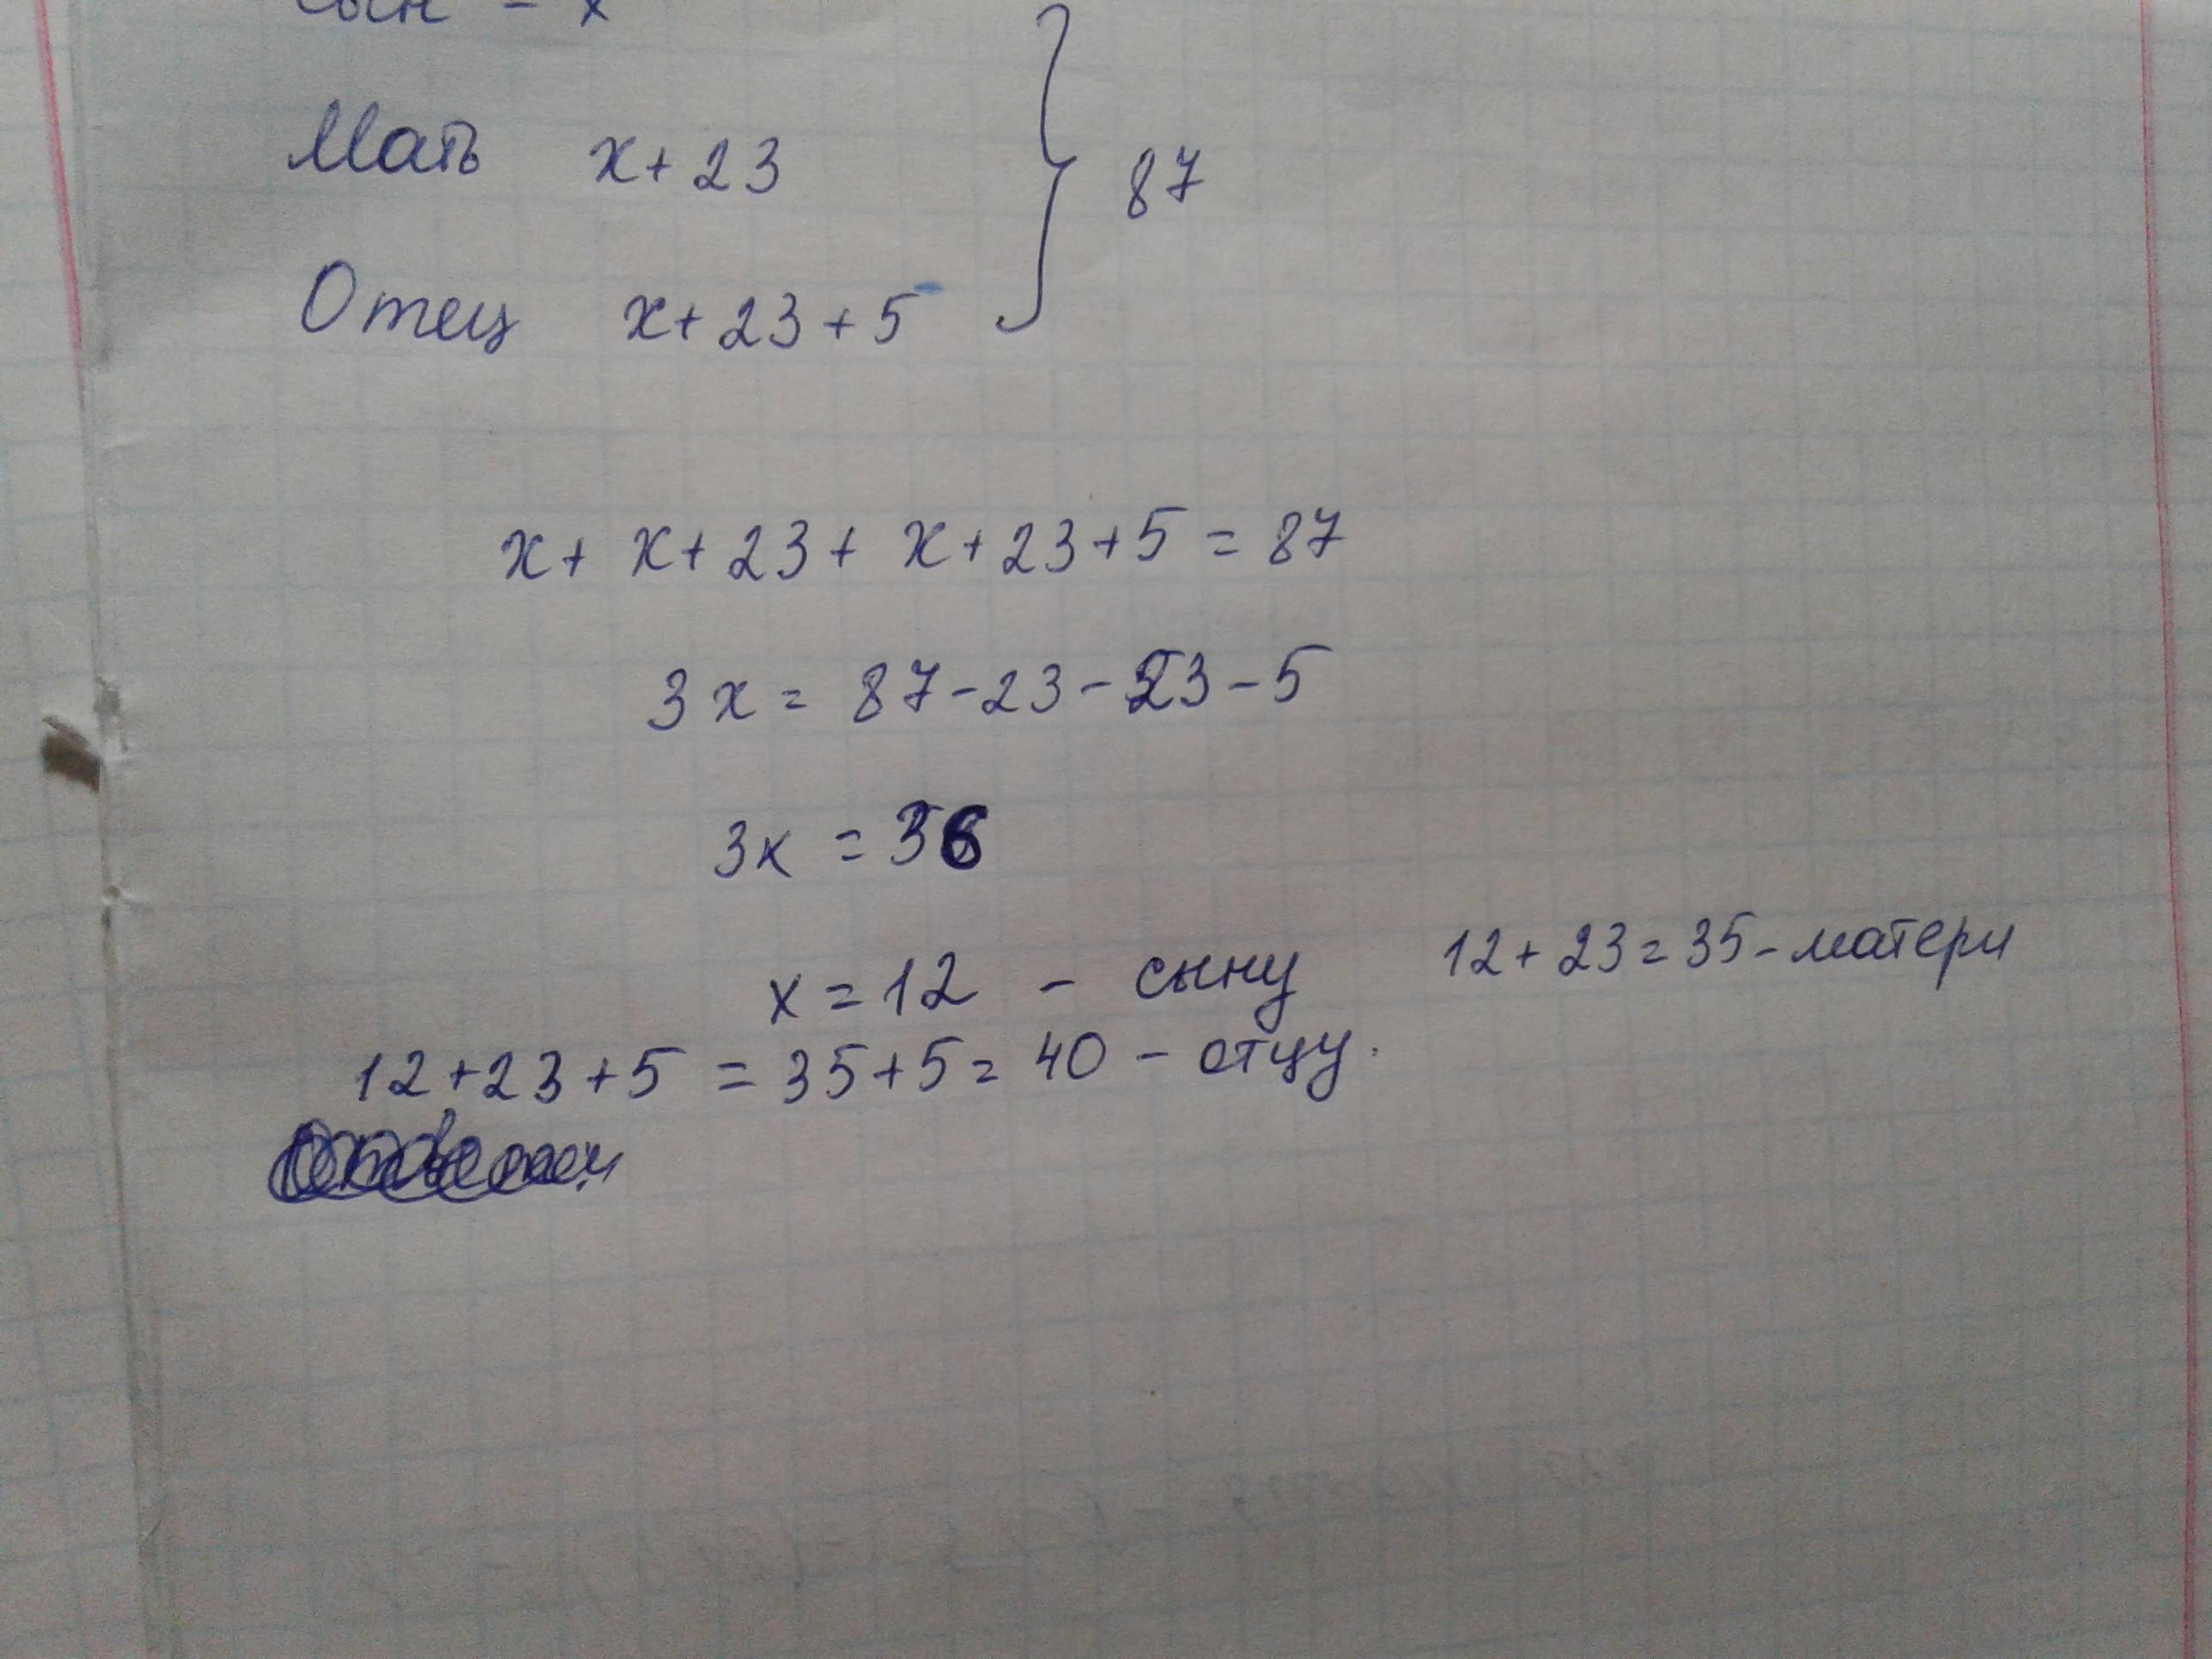 Сын - x
Мать x+23
Отец x+23+5 } 87
x+ x+23+ x+23+5=87
3x= 87-23-23-5
3x =36
x=12 - сыну 12+23=35-матери
12+23+5 =35+5=40 - отцу.